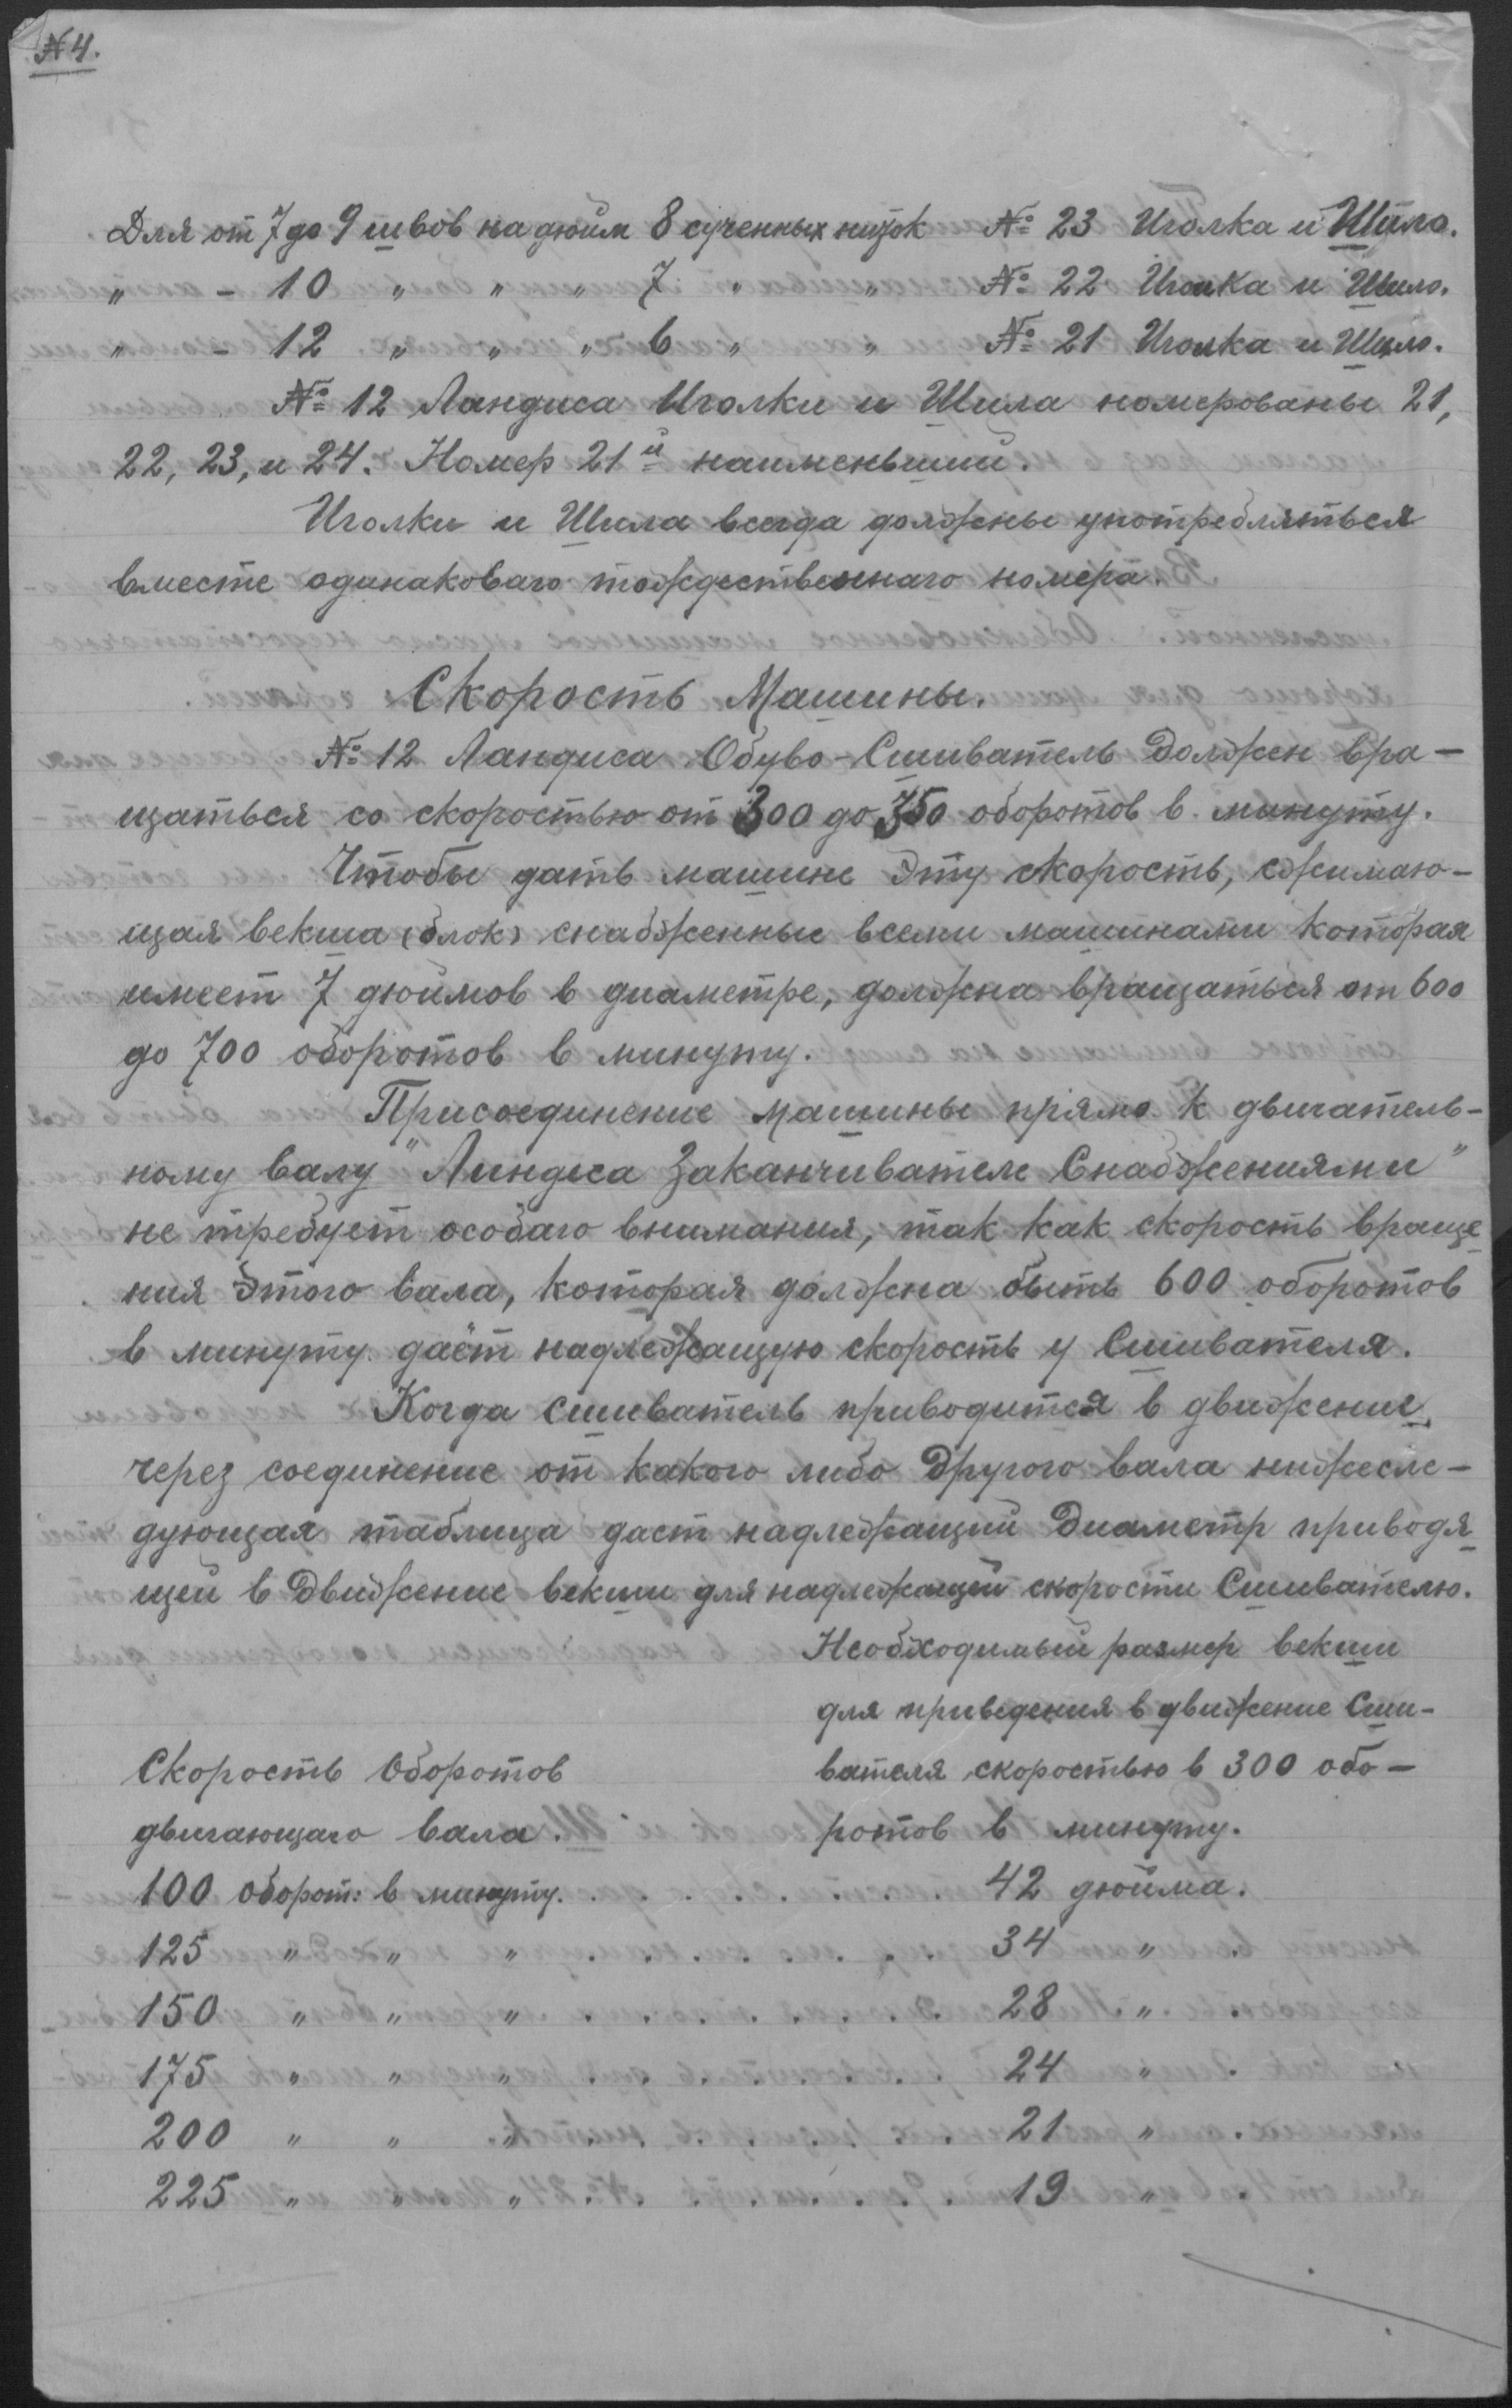 №4.
Для от 7 до 9 швов на дюйм 8 сученных ниток № 23 Иголка и Шило.
„ - 10 „ „ „ 7 „ „ № 22 Иголка и Шило.
„ - 12 „ „ „ 6 „ „ № 21 Иголка и Шило.
№ 12 Ландиса Иголки и Шила номерованы 21,
22, 23, и 24. Номер 21й наименьший.
Иголки и Шила всегда должны употребляться
вместе одинаковаго тождественнаго номера.
Скорость Машины.
№ 12 Ландиса Обуво-Сшиватель Должен вра-
щаться со скоростью от 300 до 350 оборотов в минуту.
Чтобы дать машине эту скорость, сжимаю-
щая векша (блок) снабженные всеми машинами которая
имеет 7 дюймов в диаметре, должна вращаться от 600
до 700 оборотов в минуту.
Присоединение машины прямо к двигатель-
ному валу "Линдиса Заканчивателе Снабжениями"
не требует особаго внимания, так как скорость враще
ния этого вала, которая должна быть 600 оборотов
в минуту даёт надлежащую скорость у Сшивателя.
Когда сшиватель приводится в движения
через соединение от какого либо Другого вала нижесле-
дующая таблица даст надлежащий Диаметр приводя
щей в Движение векши для надлежащей скорости Сшивателю.
Необходимый размер векши
для приведения в движение Сши-
Скорость Оборотов вателя скоростью в 300 обо-
двигающаго вала. ротов в минуту.
100 оборот: в минуту. . . . . . . . 42 дюйма.
125 „ „ „ . . . . . . . 34 „
150 „ „ „ . . . . . . . 28 „
175 „ „ „ . . . . . . . 24 „
200 „ „ „ . . . . . . . 21 „
225 „ „ „ . . . . . . . 19 „